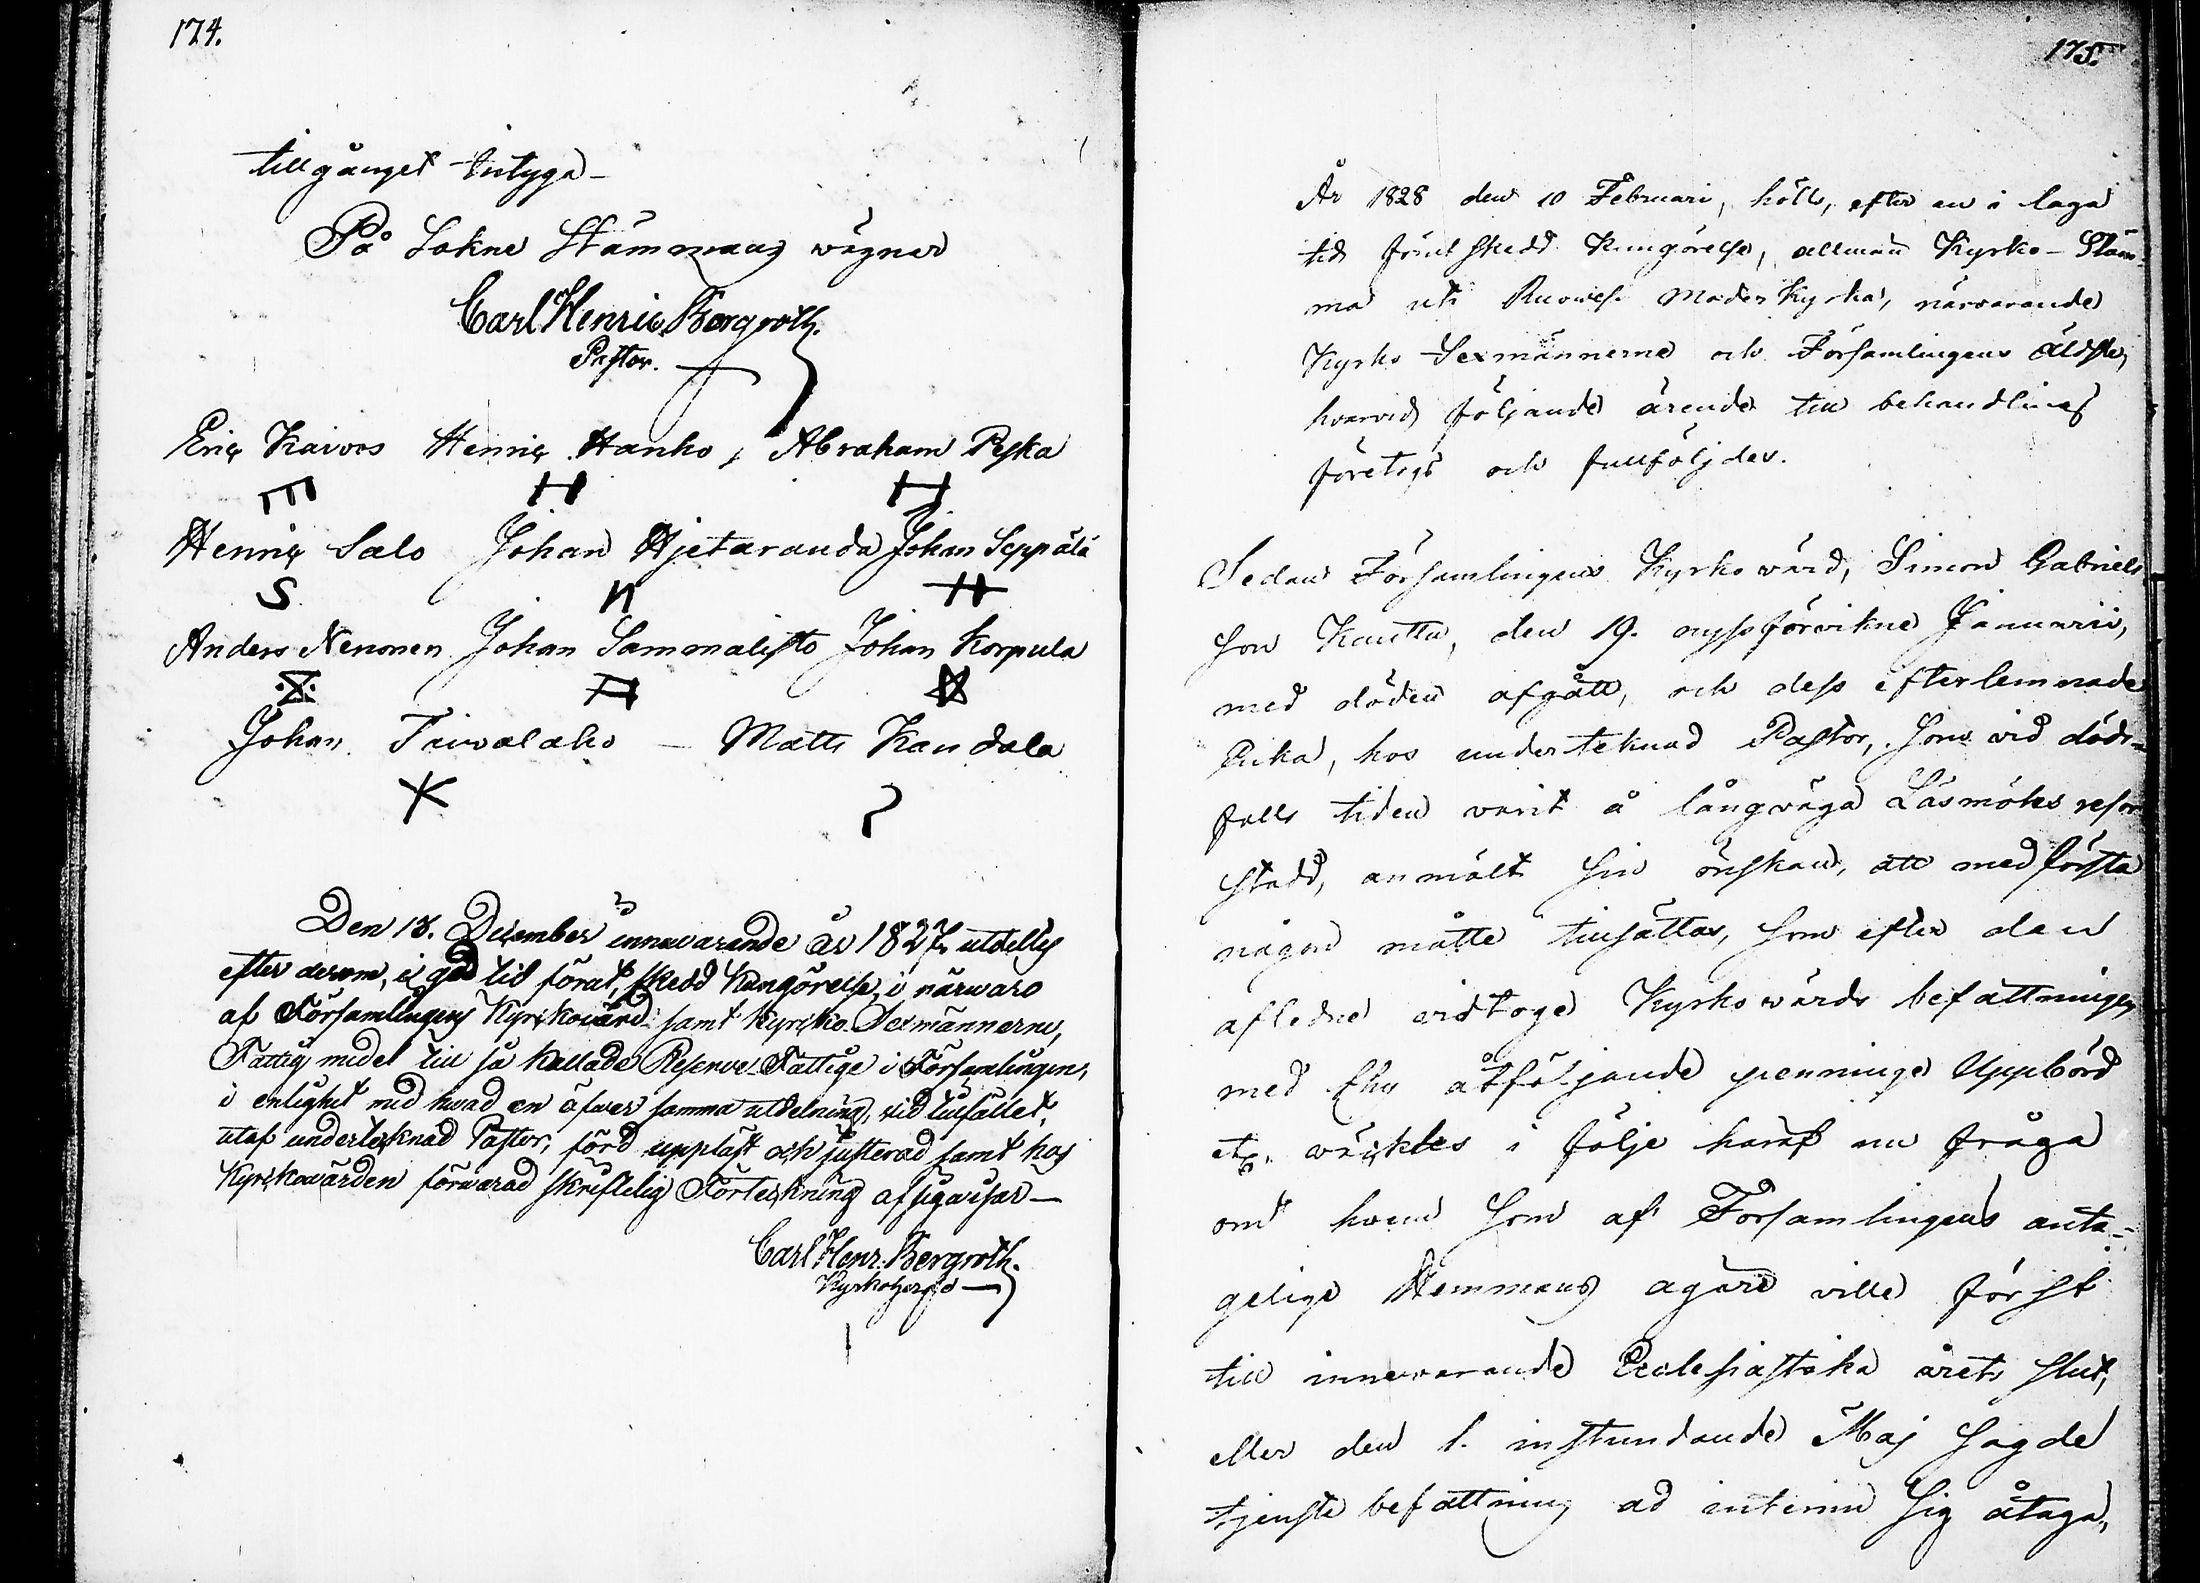 174.
tillgånget intyga_
På Sokne Stämmans wägnar
Carl Henric Bergroth.
Pastor.
Eric Kaivos Henric Hanho, Abraham Peska
Henric Salo Johan Hjetaranda Johan Seppälä
S
Anders Nenonen Johan Sammalisto Johan Korpula
Johan Taivalaho – Matts Kandala
Den 13. December innewarande år 1827 utdeltes
efter derom, i god tid förut, skedd Kungörelse, i närwaro
af Församlingens Kyrkowärd samt Kyrko Sexmännerne,
Fattig medel till så kallade Reserve-Fattige i Församlingen,
i enlighet med hwad en öfwer samma utdelning, wid tillfället,
utaf undertecknad Pastor, förd uppläst och justerad samt hos
Kyrkowärden förwarad skriftelig Förteckning utwisar —
Carl Henr. Bergroth.
Kyrkoherde
175.
År 1828 den 10 Februari, hölls, efter en i laga
tid förut skedd Kungörelse, allmän Kyrko-Stäm-
ma uti Ruowesi Moder Kyrka, närvarande
Kyrko Sexmännerne och Församlingens äldste,
hvarvid följande ärende till behandling
företogs och fullföljdes.
Sedan Församlingens Kyrko värd, Simon Gabriels
son Kautta, den 19. nyssförvikne Januarii,
med döden afgått, och dess efterlemnade
Enka, hos undertecknad Pastor, som vid döds-
falls tiden varit å långväga Läsmötes resor
stadd, anmält sin önskan, att med första
någon måtte tillsättas, som efter den
aflidne vidtoge Kyrko wärds befattningen
med thy åtföljande penninge Uppbörd
etc. wäcktes i följe häraf nu fråga
om hvem som af Församlingens anta-
gelige Hemmans ägare ville först
till innevarande Ecclesiastika årets slut,
eller den 1. instundande Maj sagde
tjenste befattning ad interim sig åtaga,